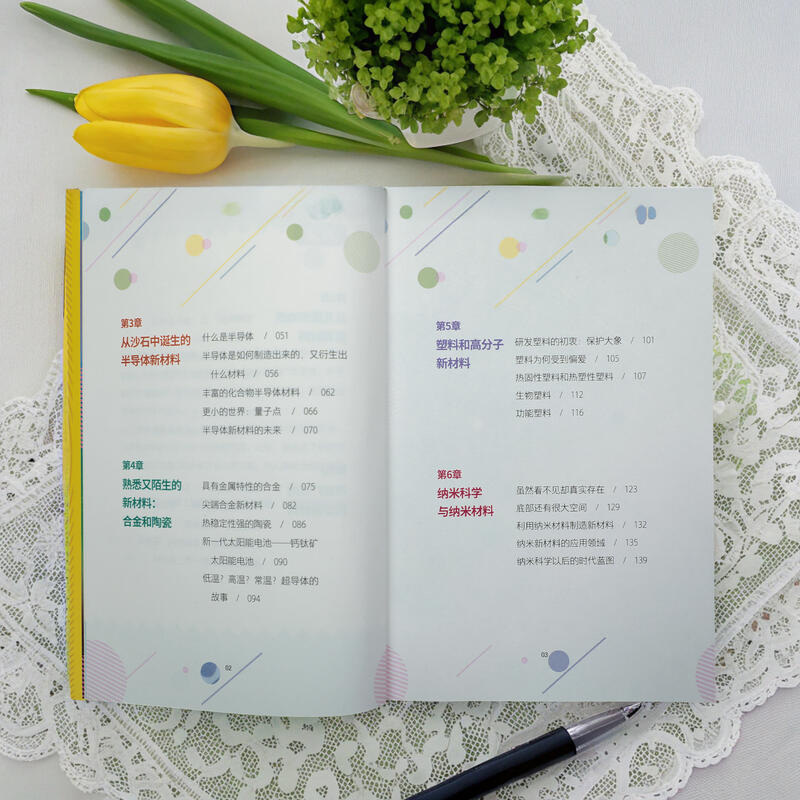 第3章
从沙石中诞生的
半导体新材料
什么是半导体 / 051
半导体是如何制造出来的，又衍生出
什么材料 / 056
丰富的化合物半导体材料 / 062
更小的世界：量子点 / 066
半导体新材料的未来 / 070
第4章
熟悉又陌生的
新材料：
合金和陶瓷
具有金属特性的合金 / 075
尖端合金新材料 / 082
热稳定性强的陶瓷 / 086
新一代太阳能电池——钙钛矿
太阳能电池 / 090
低温？高温？常温？超导体的
故事 / 094
02
第5章
塑料和高分子
新材料
研发塑料的初衷：保护大象 / 101
塑料为何受到偏爱 / 105
热固性塑料和热塑性塑料 / 107
生物塑料 / 112
功能塑料 / 116
第6章
纳米科学
与纳米材料
虽然看不见却真实存在 / 123
底部还有很大空间 / 129
利用纳米材料制造新材料 / 132
纳米新材料的应用领域 / 135
纳米科学以后的时代蓝图 / 139
03